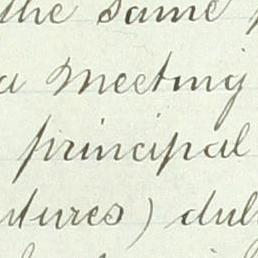 the same
a meeting
principal
tures) dul